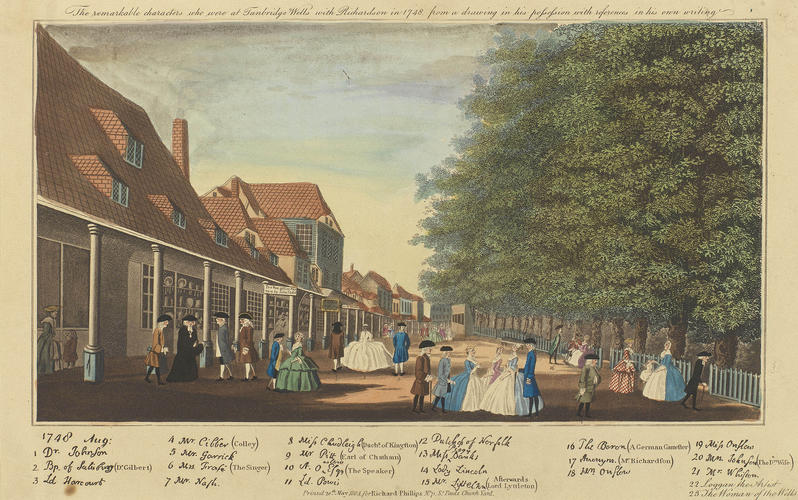 The remarkable characters who were at Tunbridge Wells with Richardson in 1748 from a drawing in his possession with references in his own writing
1748 Aug:
1 Dr. Johnson
2 Bp. of Salisbury (Dr Gilbert)
3 Ld Harcourt
4 Mr. Cibber (Colley)
5 Mr. Garrick
6 Mrs Frasi (The Singer)
7 Mr. Nash.
8 Miss Chudleigh (Duchs. of Kingston)
9 Mr Pitt (Earl of Chatham)
10 A. Onslow Esqr (The Speaker)
11 Ld. Powis
12 Dutchess of Norfolk
13 Miss Peggy Banks
14 Lady Lincoln
15 Mr. Lyttelton Afterwards (Lord Lyttleton)
16 The Baron (A German Gamester)
17 Anonym. (Mr Richardson)
18 Mrs Onslow
19 Miss Onslow
20 Mrs Johnson (The Drs. Wife)
21 Mr Whiston
22 Loggan the Artist
23 The Woman of the Wells
Printed May 1804 for Richard Phillips No 71, St. Pauls Church Yard.